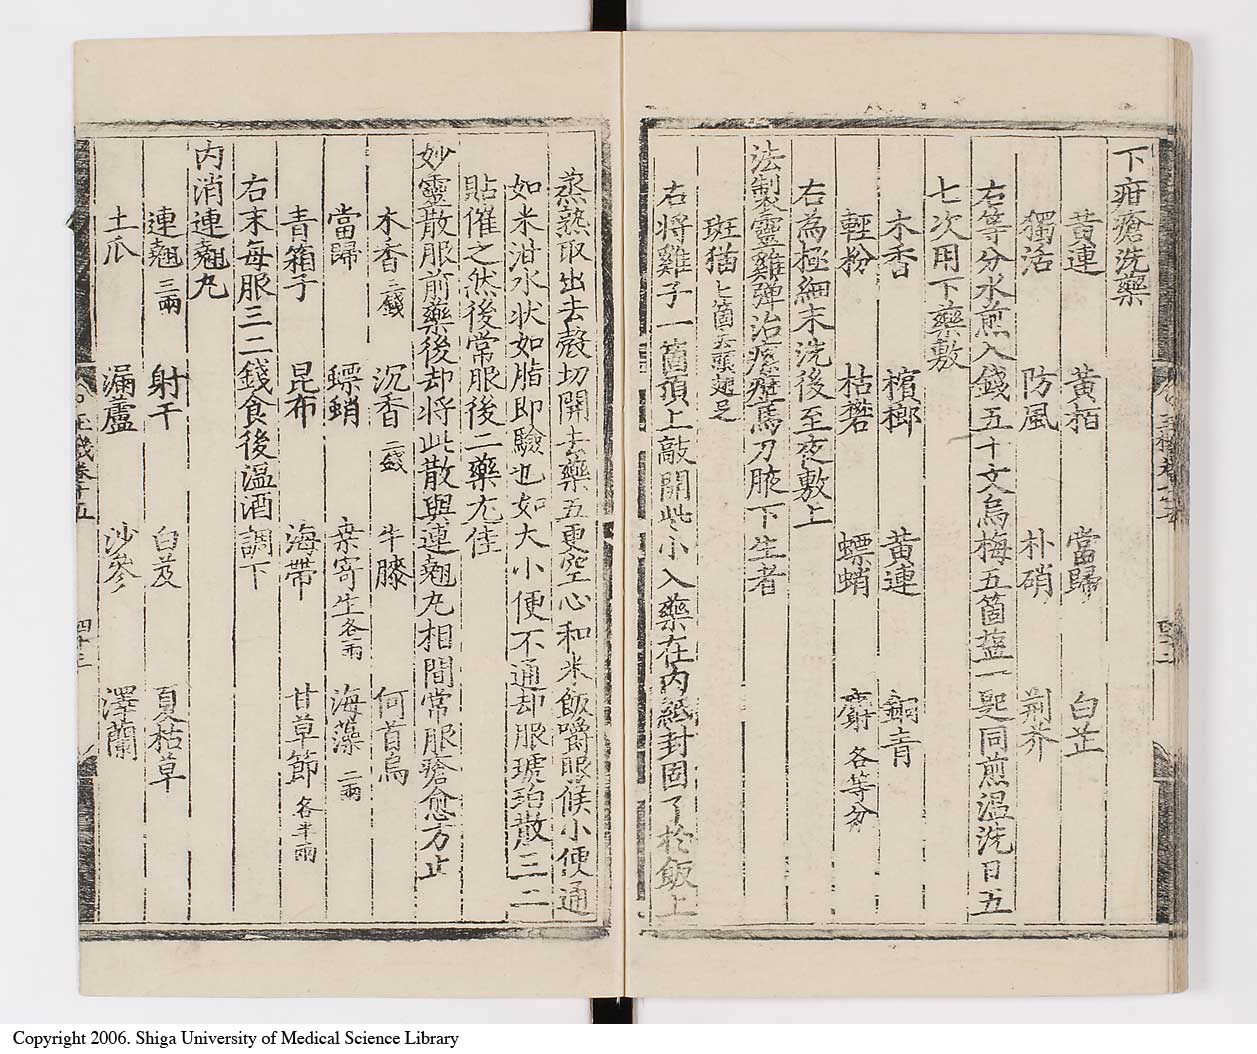 下疳瘡洗藥
黃連 黃栢 當歸 白芷
獨活 防風 朴硝 荊芥
右等分水煎入錢五十文烏梅五箇盬一匙同煎温洗日五
七次用下藥敷
木香 檳榔 黃連 銅青
輕粉 枯礬 螵蛸 麝 各等分
右為極細末洗後至夜敷上
法製靈雞彈治瘰癧馬刀腋下生者
斑猫七箇去頭翅足
右將雞子一箇頂上敲開些小入藥在内紙封固了於飯上
蒸熟取出去殼切開去藥五更空心和米飯嚼服候小便通
如米泔水状如脂即驗也如大小便不通却服琥珀散三二
貼催之然後常服後二藥尤佳
妙靈散服前藥後却將此散與連翹丸相間常服瘡愈方止
木香三錢 沉香二錢 牛膝 何首烏
當歸 螵蛸 桒寄生各一兩 海藻二兩
青葙子 昆布 海帶 甘草節各半兩
右末每服三二錢食後温酒調下
内消連翹丸
連翹三兩 射干 白芨 夏枯草
土瓜 漏蘆 沙參 澤蘭
四十三